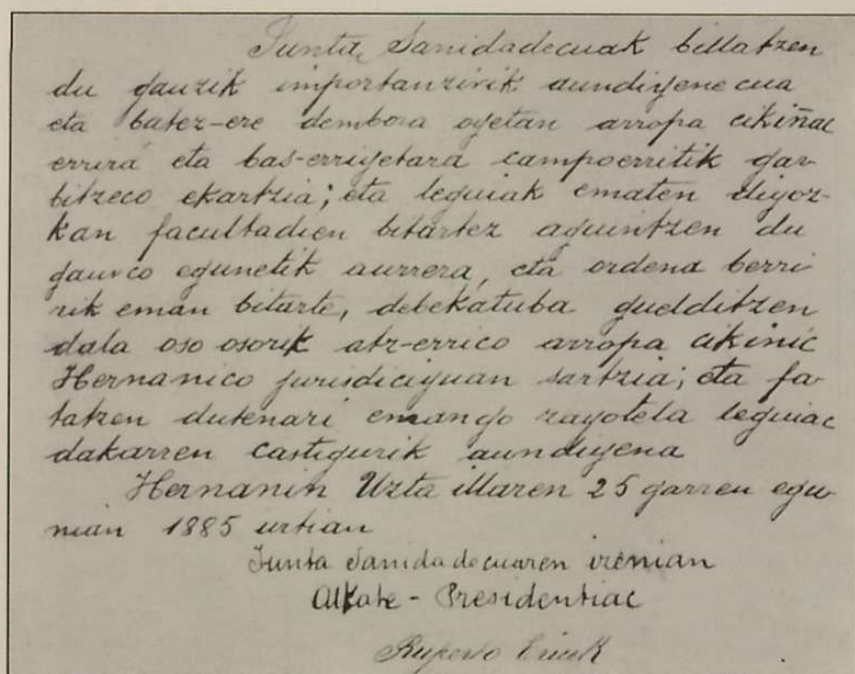 Junta Sanidadecuak billatzen
du gauzik importanzirik aundiyenecua
eta batez-ere dembora oyetan arropa cikiñac
errira eta bas-erriyetara campoerritik gar-
bitzeco ekartzia; eta leguiak ematen diyoz-
kan facultadien bitartez aguintzen du
gaurco egunetik aurrera, eta ordena berri
rik eman bitarte, debekatuba gueldditzen
dala oso osorik atz-errico arropa cikinic
Hernanico jurisdiciyuan sartzia; eta fa-
tatzen dutenari emango zayotela leguiac
dakarren castigurik aundiyena
Hernanin Uzta illaren 25 garren egu-
nian 1885 urtian
Junta Sanidadecuaren izenian
Alkate - Presidentiac
Ruperto